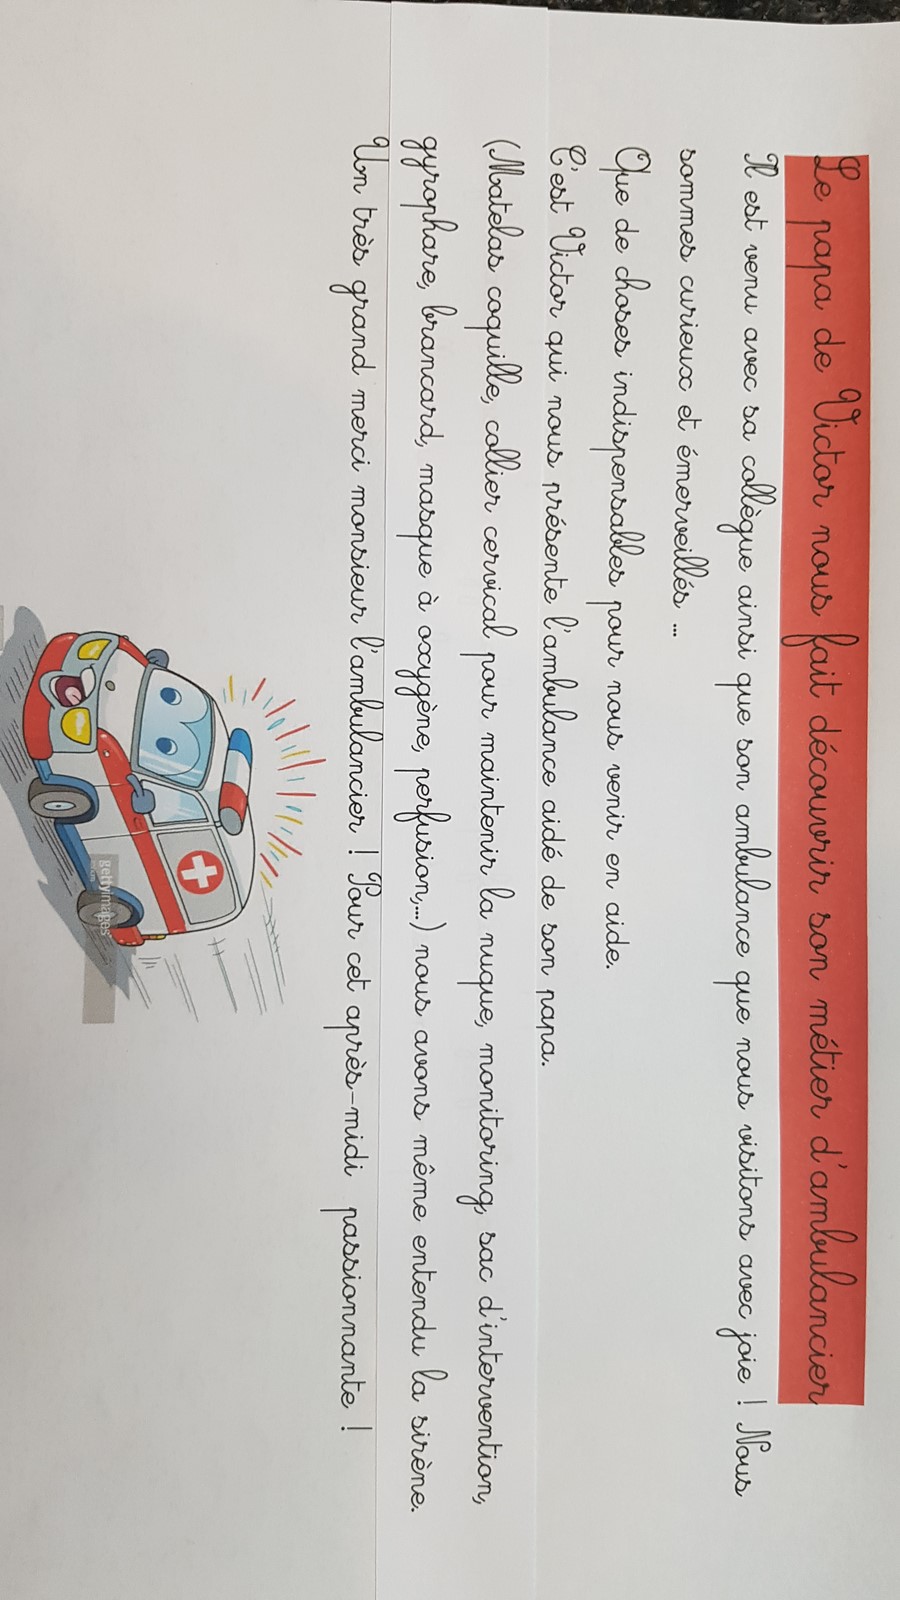 Le papa de Victor nous fait découvrir son métier d'ambulancier
Il est venu avec sa collègue ainsi que son ambulance que nous visitons avec joie ! Nous
sommes curieux et émerveillés ...
Que de choses indispensables pour nous venir en aide.
C'est Victor qui nous présente l'ambulance aidé de son papa.
(Matelas coquille, collier cervical pour maintenir la nuque, monitoring, sac d'intervention,
gyrophare, brancard, masque à oxygène, perfusion,...) nous avons même entendu la sirène.
Un très grand merci monsieur l'ambulancier ! Pour cet après-midi passionnante !
gettyimages